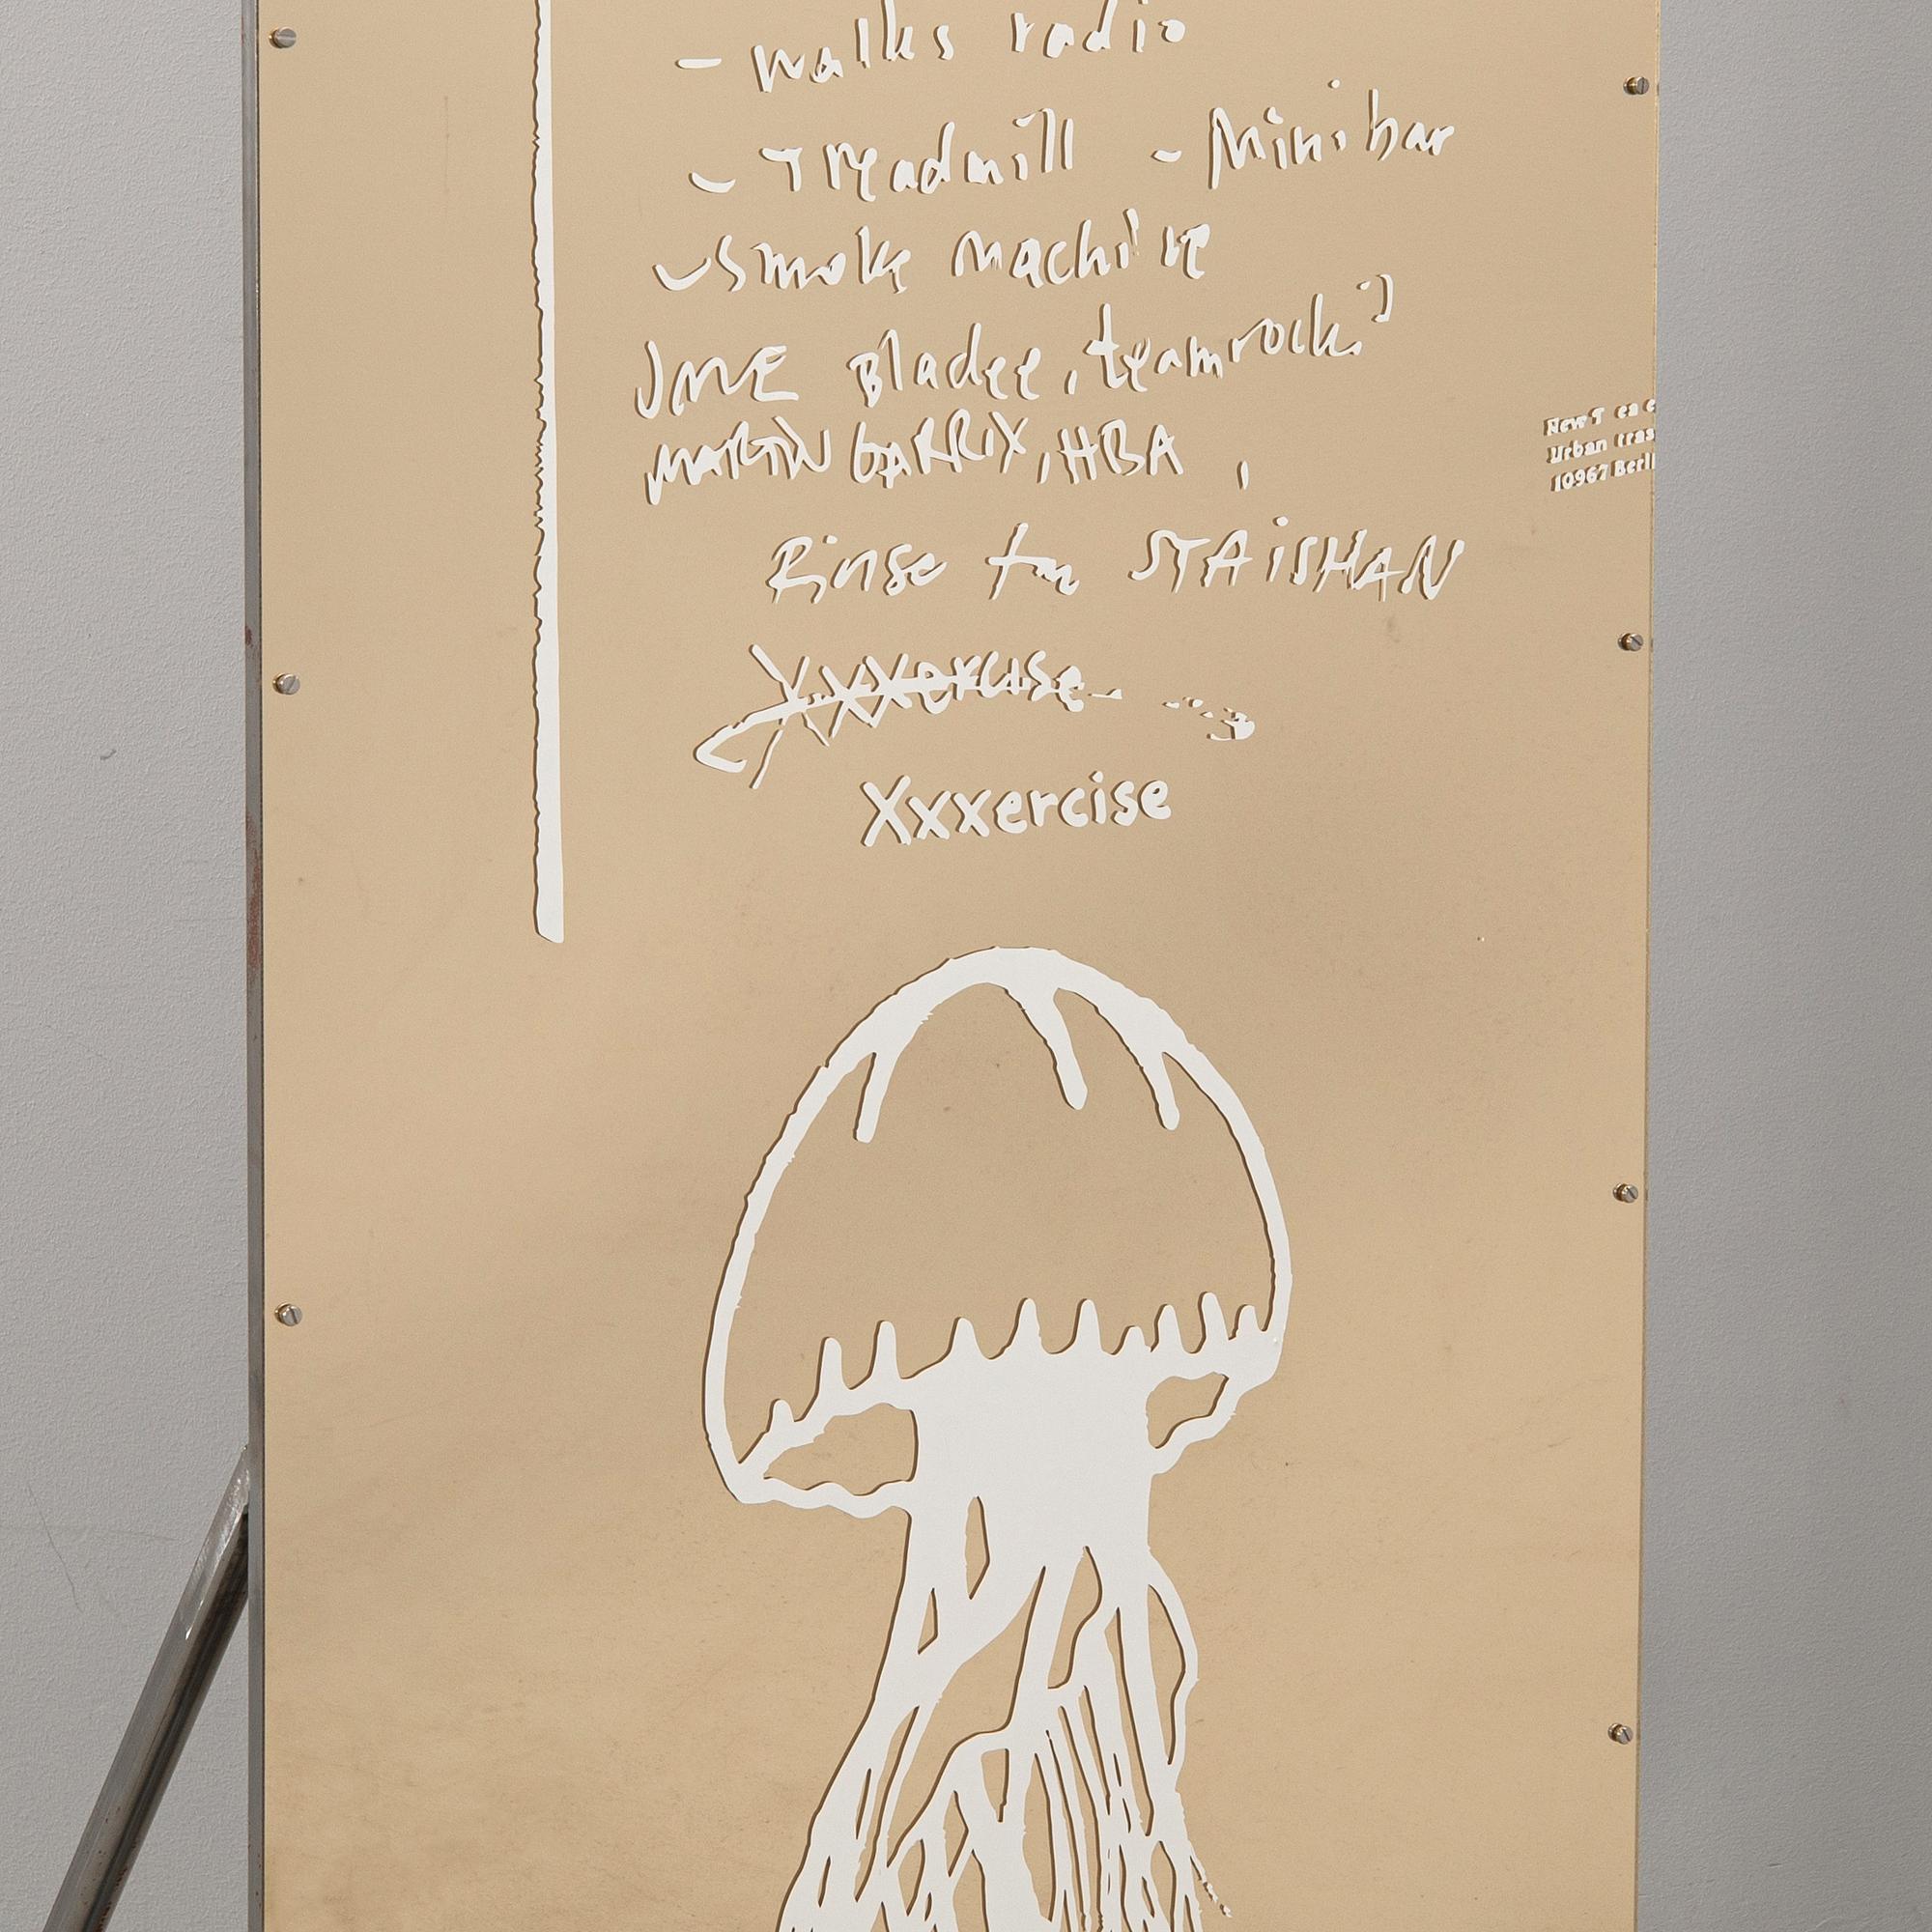 - walks radio
- Treadmill - Minibar
- Smoke machine
JME Bladee, teamrock
MARTIN GARRIX, HBA ,
Rinse fm STAiSHAN
Xxxercise
Xxxercise
New T
Urban
10967 Berli